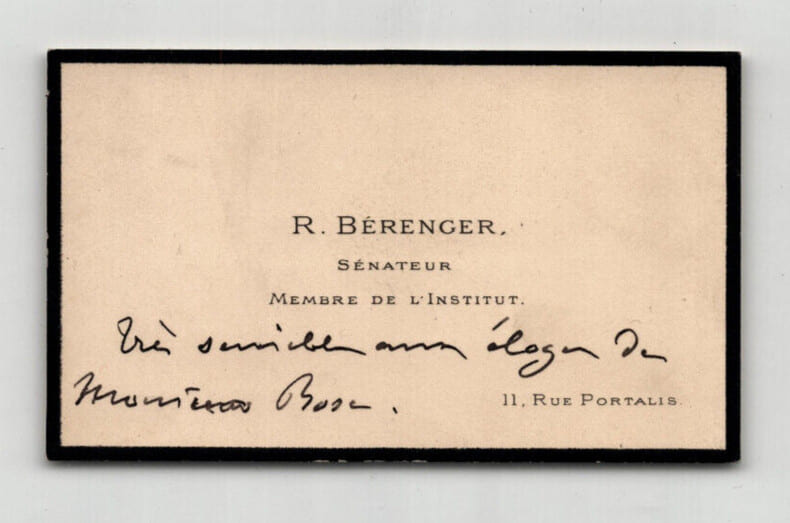 R. BÉRENGER.
SÉNATEUR
MEMBRE DE L'INSTITUT.
Très sensible aux éloges de
Monsieur
11, RUE PORTALIS.